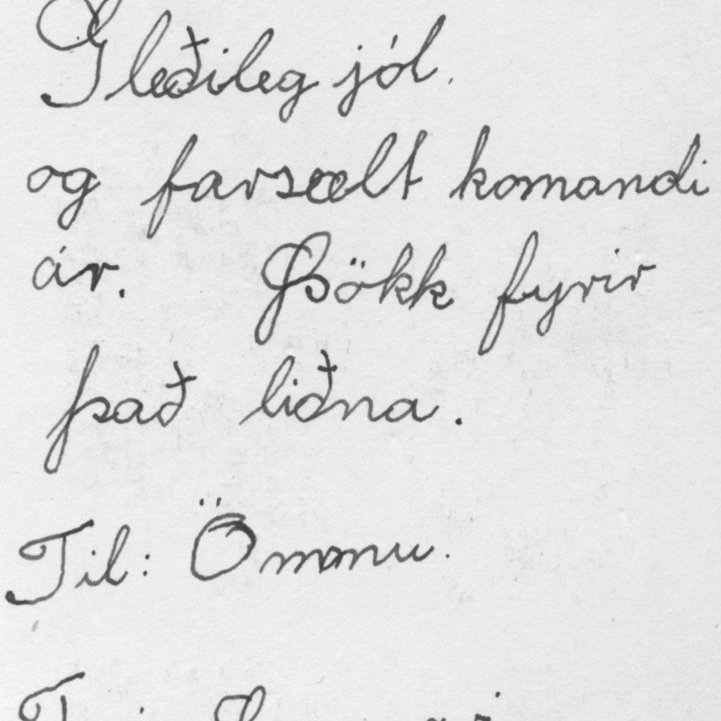 Gleðileg jól.
og farsælt komandi
ár. Þökk fyrir
það liðna.
Til: Ömmu.